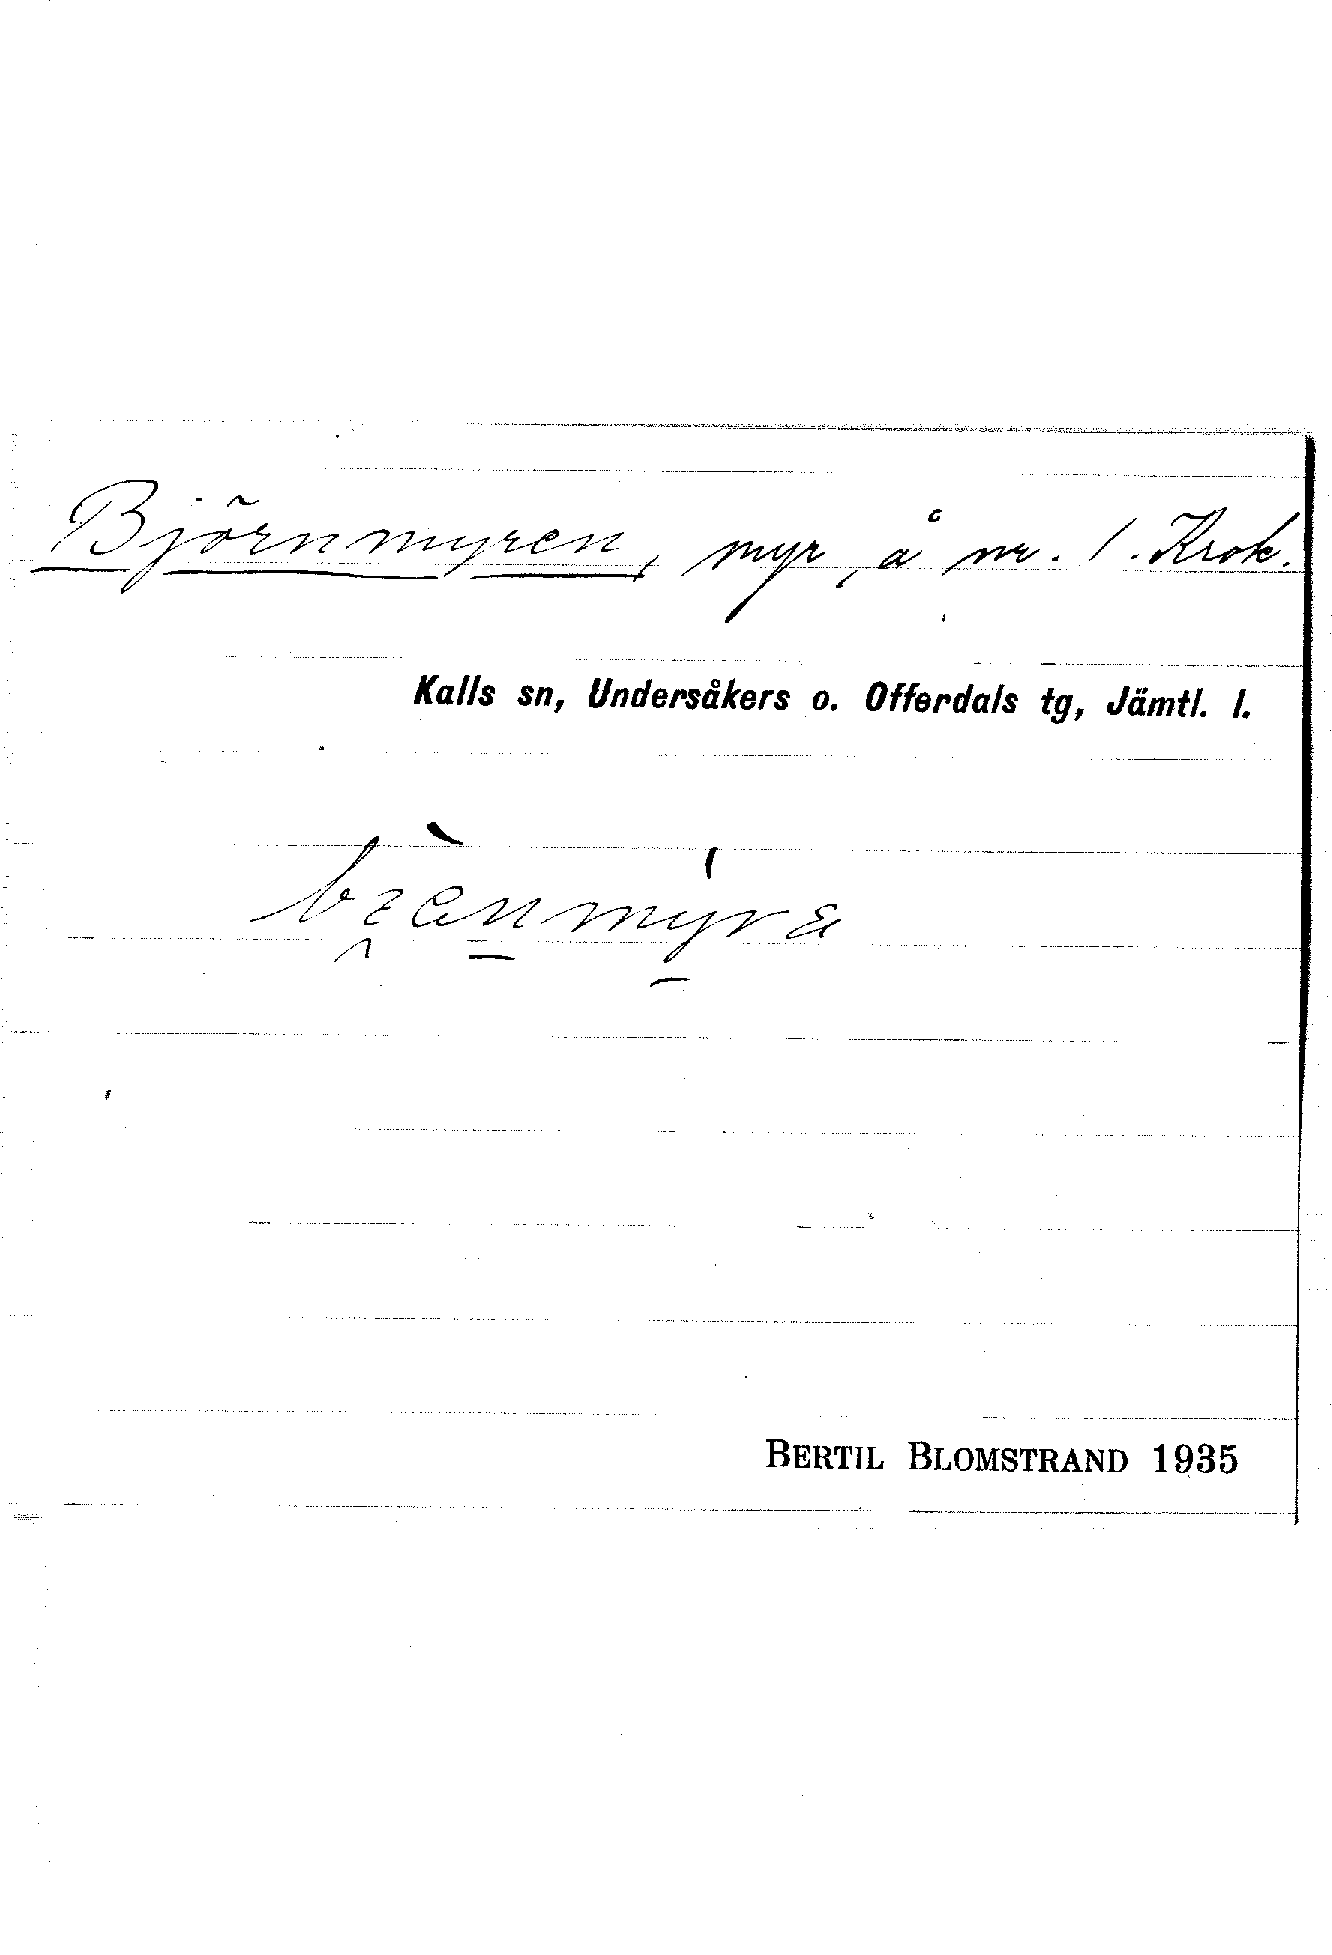 Björnmyren, myr, å nr. 1. Krok.
Kalls sn, Undersåkers o. Offerdals tg, Jämtl. l.
BERTIL BLOMSTRAND 1935